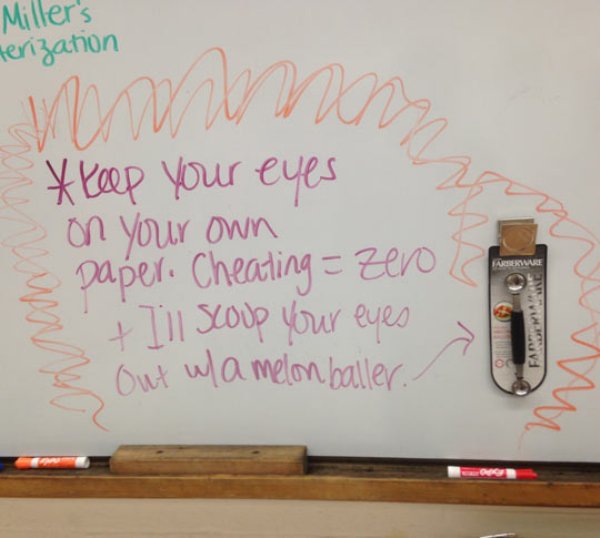 Miller's
terization
* Keep your eyes
on your own
paper. Cheating = zero
+ I'll scoop your eyes
out w/a melon baller.
FARBERWARE
FARBERWARE
EXPO